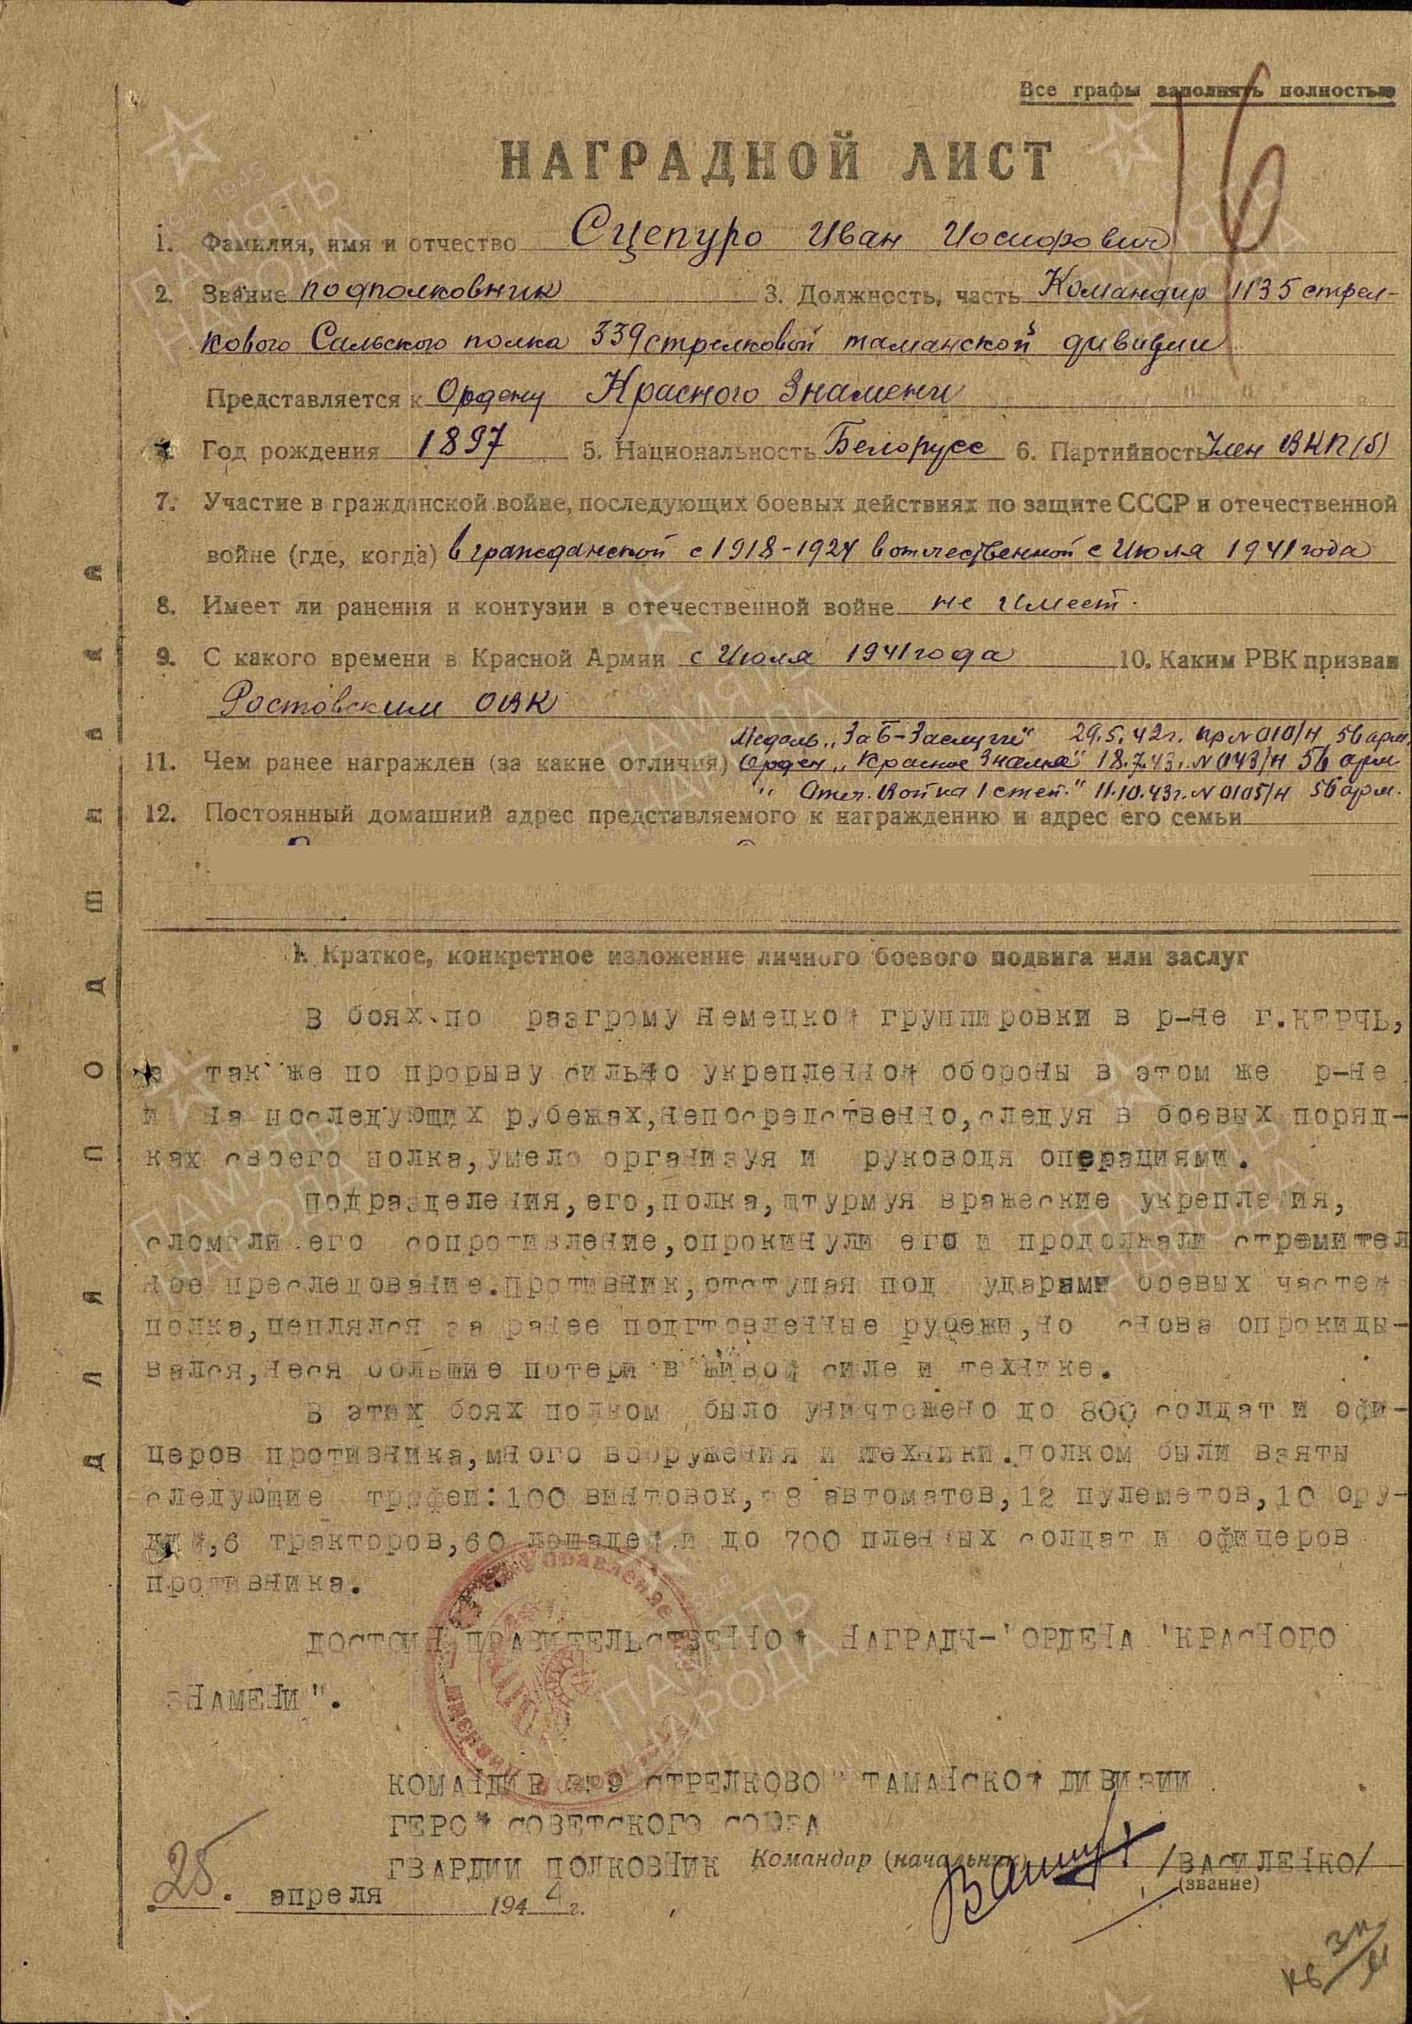 Все графы заполнять полностью
16
НАГРАДНОЙ ЛИСТ
1. Фамилия, имя и отчество Сцепуро Иван Иосифович
2. Звание подполковник 3. Должность, часть Командир 1135 стрел-
кового Сальского полка 339 стрелковой таманской дивизии
Представляется к Ордену Красного Знамени
4. Год рождения 1897 5. Национальность Белорусс 6. Партийность Член ВКП(б)
7. Участие в гражданской войне, последующих боевых действиях по защите СССР и отечественной
войне (где, когда) в гражданской с 1918-1924 в отечественной с Июля 1941 года
8. Имеет ли ранения и контузии в отечественной войне не имеет.
9. С какого времени в Красной Армии с Июля 1941 года 10. Каким РВК призван
Ростовским ОВК
Медаль „За Б-Заслуги" 29.5.42г. пр № 010/н 56 арм.
11. Чем ранее награжден (за какие отличия) Орден „Красное Знамя" 18.7.43г. № 043/н 56 арм.
" Отеч. Война 1 степ." 11.10.43г. № 0105/н 56 арм.
12. Постоянный домашний адрес представляемого к награждению и адрес его семьи
ДЛЯ ПОДШИВКИ
I. Краткое, конкретное изложение личного боевого подвига или заслуг
В боях по разгрому немецкой группировки в р-не г.КЕРЧЬ,
а так же по прорыву сильно укрепленной обороны в этом же р-не
и на последующих рубежах,непосредственно,следуя в боевых поряд-
ках своего полка,умело организуя и руководя операциями.
Подразделения,его,полка,штурмуя вражеские укрепления,
сломали его сопротивление,опрокинули его и продолжали стремител
ное преследование.Противник,отступая под ударами боевых частей
полка,цеплялся за ранее подгтовленные рубежи,но снова опрокиды-
вался,неся большие потери в живой силе и технике.
В этих боях полком было уничтожено до 800 солдат и офи-
церов противника,много вооружения и техники.Полком были взяты
следующие трофеи:100 винтовок, 8 автоматов,12 пулеметов,10 ору-
дий,6 тракторов,60 лошадей и до 700 пленных солдат и офицеров
противника.
ДОСТОИН ПРАВИТЕЛЬСТВЕННОЙ НАГРАДЫ-"ОРДЕНА "КРАСНОГО
ЗНАМЕНИ".
КОМАНДИР 339 СТРЕЛКОВОЙ ТАМАНСКОЙ ДИВИЗИИ
ГЕРОЙ СОВЕТСКОГО СОЮЗА
ГВАРДИИ ПОЛКОВНИК Командир (начальник) /ВАСИЛЕНКО/
(звание)
25. апреля 1944 г.
Управление
ПАМЯТЬ НАРОДА